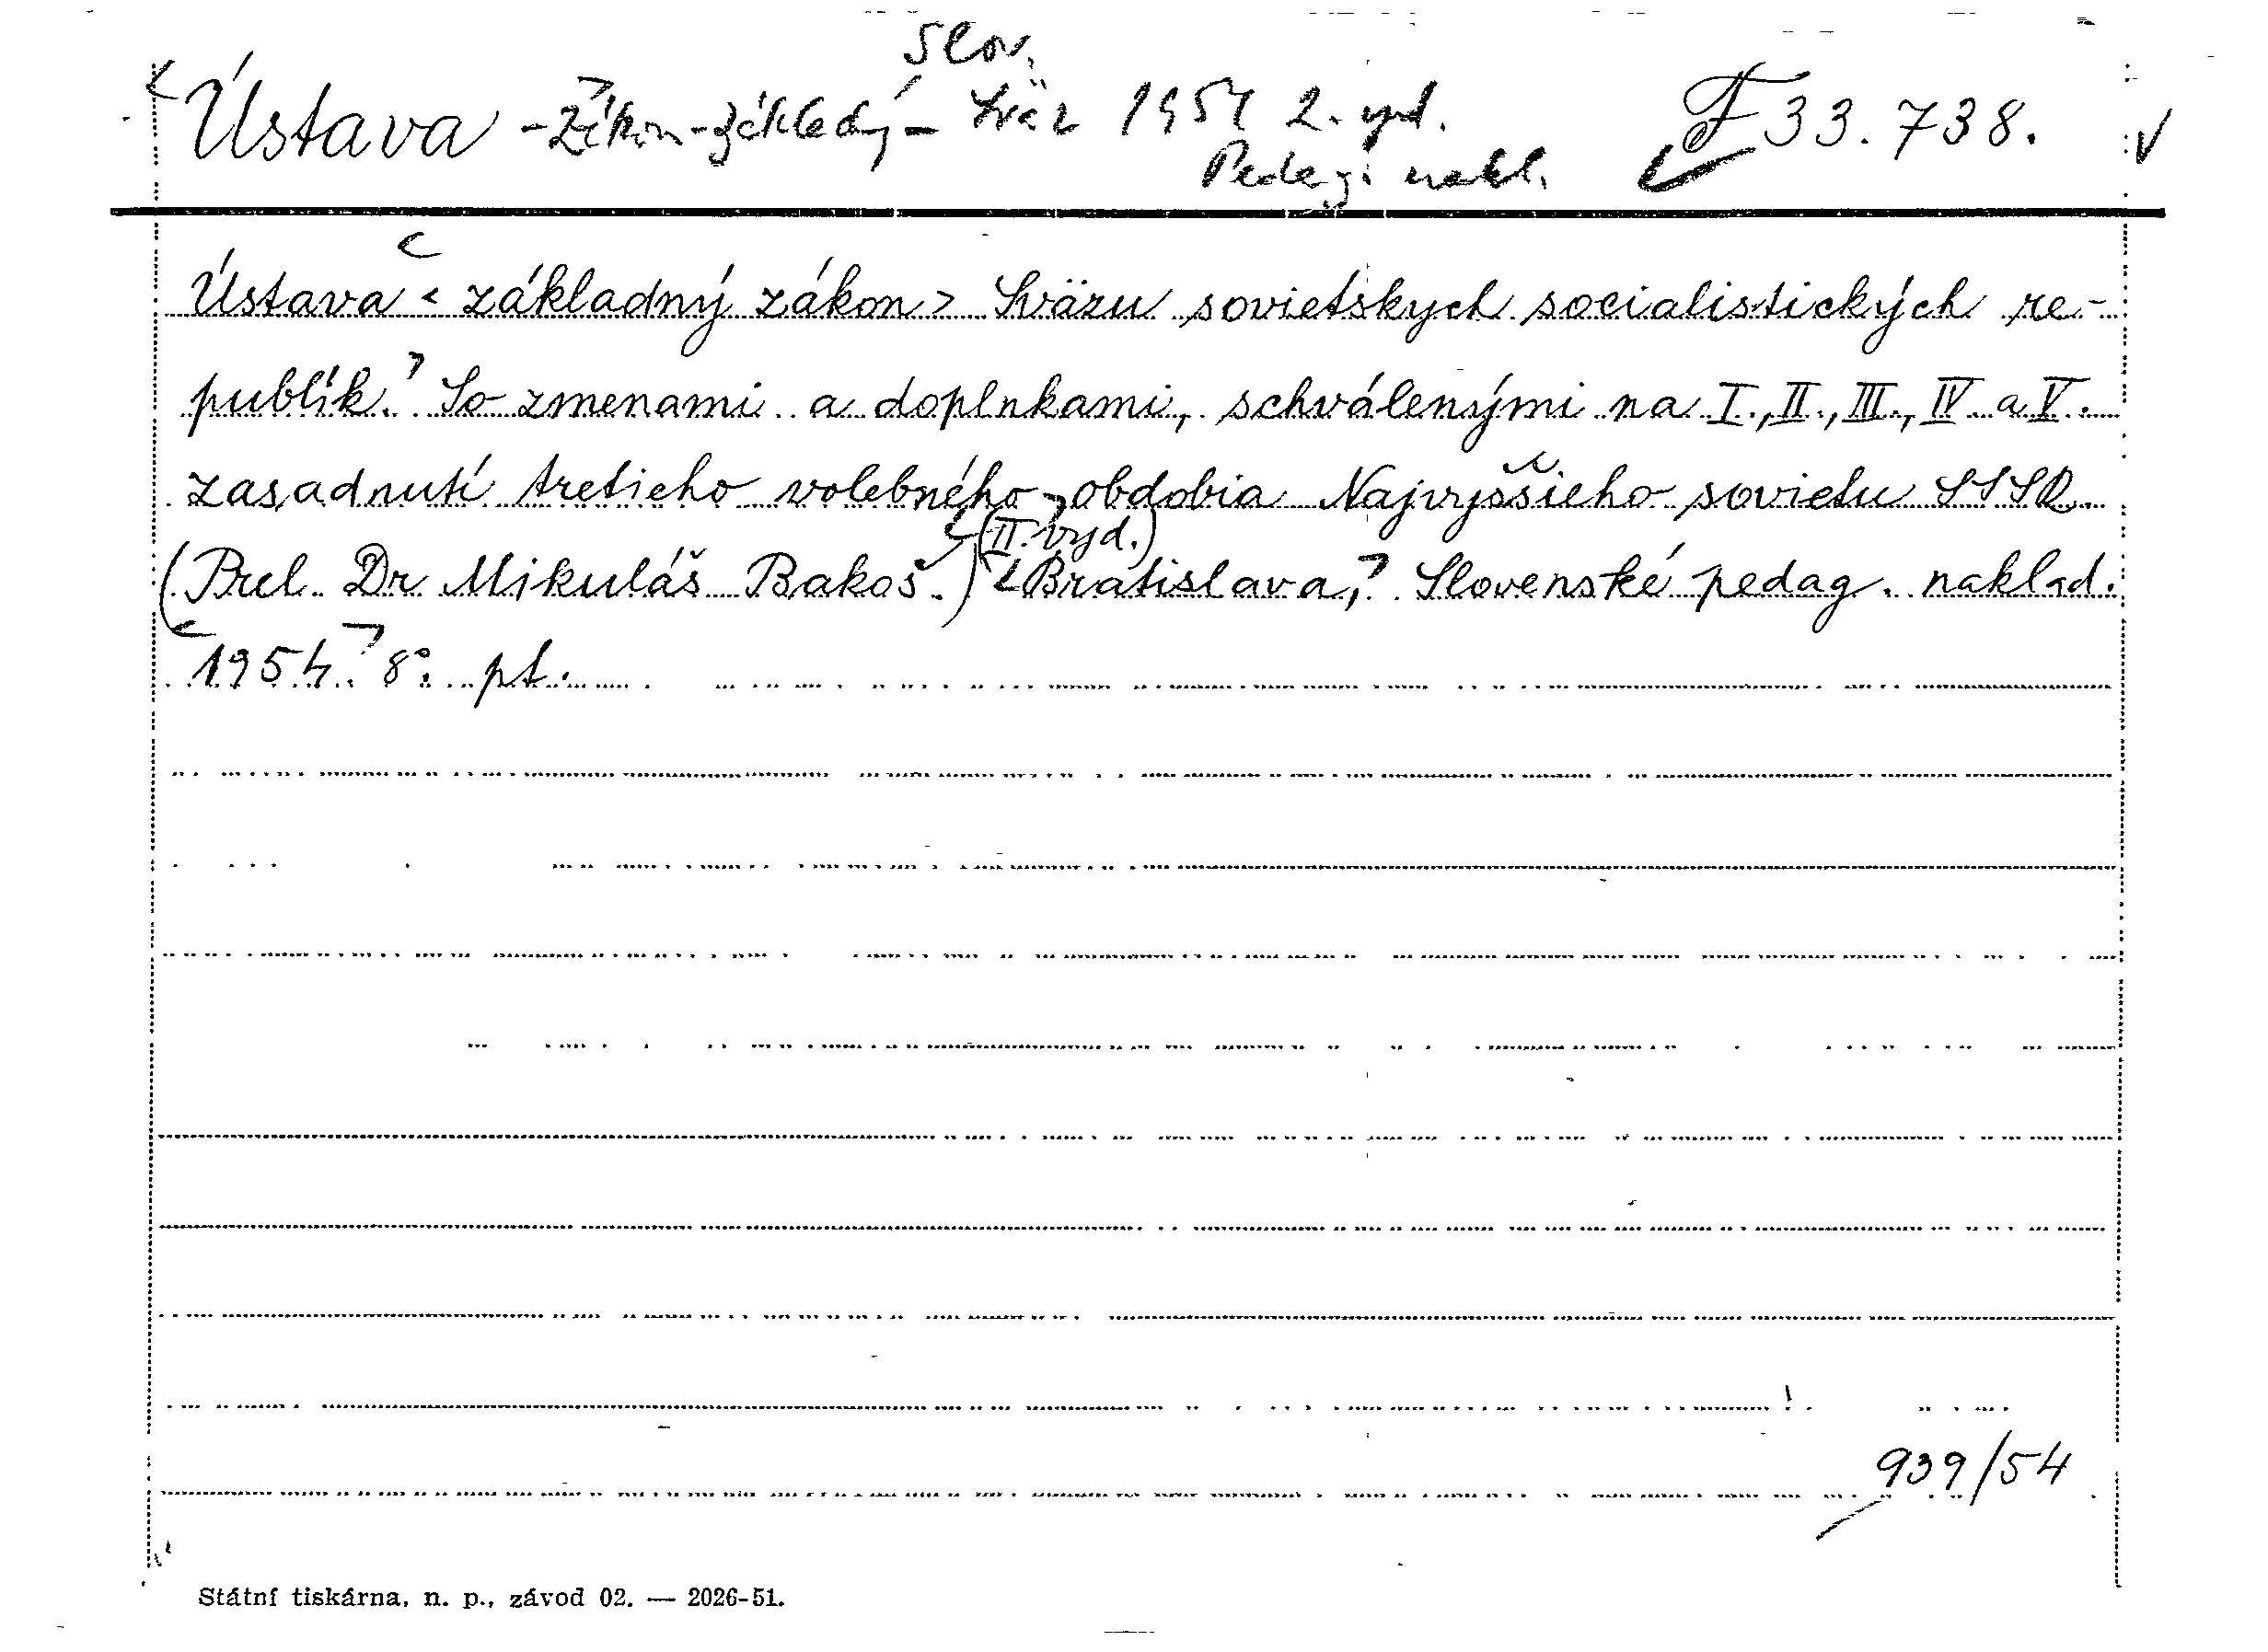 slov.
Ústava - Zákon - základný - Sväz 1954 2. vyd. F 33.738.
Pedag. nakl.
Ústava < základný zákon > Sväzu sovietskych socialistických re-
publík. So zmenami a doplnkami, schválenými na I., II., III., IV. a V.
zasadnutí tretieho volebného obdobia Najvyššieho sovietu SSSR.
(II. vyd.)
(Prel. Dr Mikuláš Bakoš.) Bratislava, Slovenské pedag. naklad.
1954. 8°. pt.
939/54
Státní tiskárna, n. p., závod 02. — 2026-51.